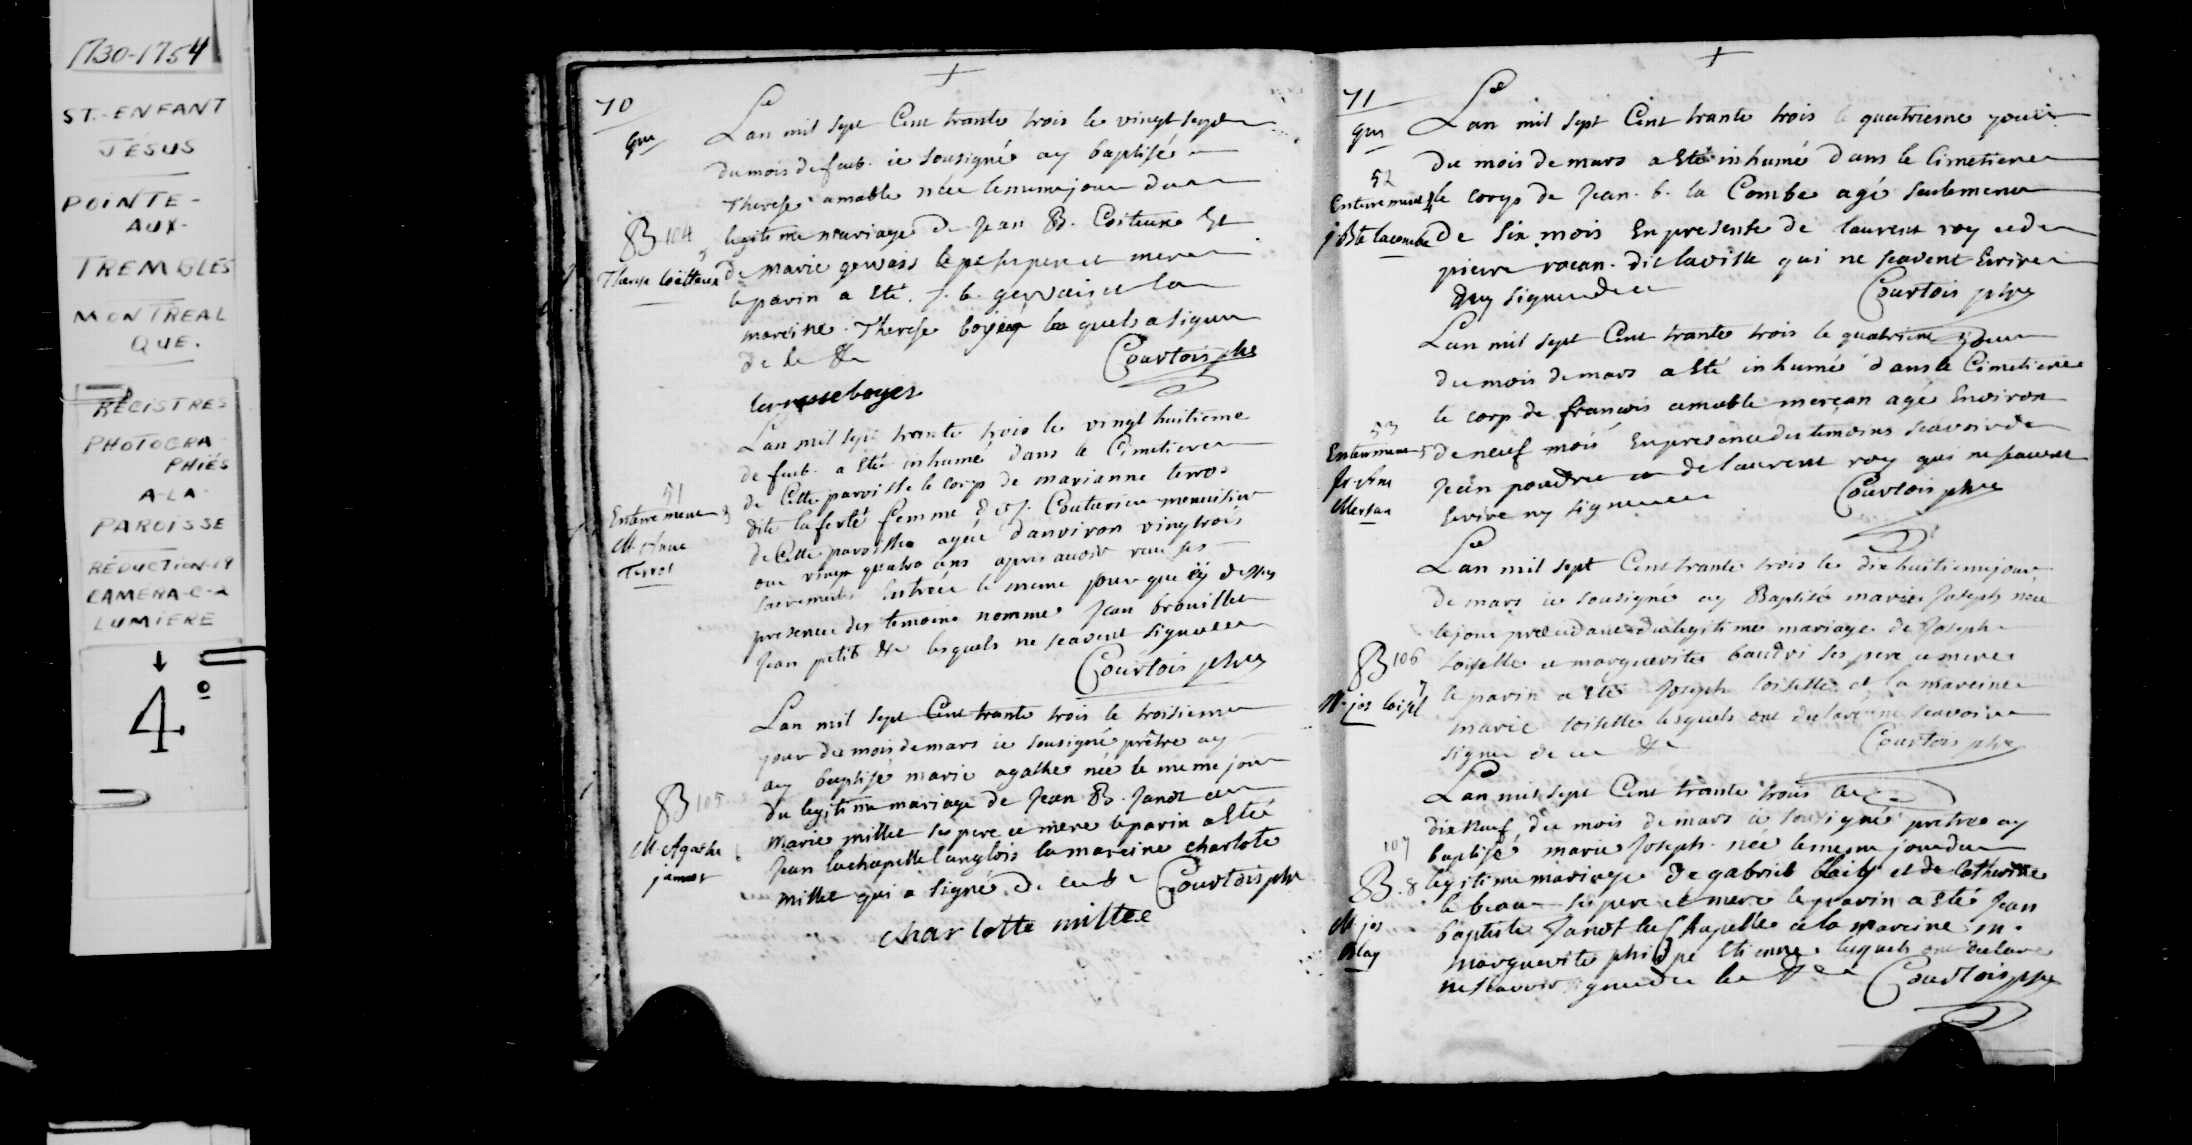 1730-1754
ST.-ENFANT
JESUS
POINTE-
AUX-
TREMBLES
MONTREAL
QUE.
REGISTRES
PHOTOGRA
PHIÉS
A-LA-
PAROISSE
RÉDUCTION-14
CAMERA-C-2
LUMIERE
4º
70
Lan mil sept Cent trante trois le vingt sept
du mois de feub. ie sousigné ay baptisé
Therese amable née le mesme jour du
legitime mariage de Jean B. Costeux Et
de marie gervais ses pere et mere
le parin a Eté J. b. gervais et la
mareine Therese boyer les quels a signe
de ce &c
Courtois ptre
terese boyer
B 104
Therese Coitteux
Lan mil sept trante trois le vingt huitieme
de feub. a Eté inhumé dans le Cimetiere
de Cette paroisse le corp de marianne terros
dite la ferté femme de J. Couturier menuisier
de Cette paroisse agée danviron vingt trois
ou vingt quatre ans apres avoir reçu ses
sacrements Entrée le meme jour que cy dessus
presence des temoins nommé Jean brouillet
Jean petit &c lesquels ne scavent signer
Courtois ptre
51
Enterrement
M. Anne
Terrot
Lan mil sept Cent trante trois le troisieme
jour du mois de mars ie sousigné prêtre ay
ay baptisé marie agathe née le meme jour
du legitime mariage de Jean B. Janot et
marie millet ses pere et mere le parin a Eté
Jean lachapelle langlois la mareine charlote
millet qui a signé de ce &c Courtois ptre
charlotte millet
B 105
M. Agathe
janot
71
Lan mil sept Cent trante trois le quatriesme jour
du mois de mars a Eté inhumé dans le Cimetiere
le corps de Jean. b. la Combe agé seulement
de six mois En presente de laurent roy et de
pierre rocan dit laville qui ne scavent Ecrire
ny signer de ce
Courtois ptre
52
Enterrement
J. Bte lacombe
Lan mil sept Cent trante trois le quatrieme jour
du mois de mars a Eté inhumé dans le Cimetiere
le corp de françois amable merçan agé Environ
de neuf mois En presence des temoins scavoir de
Jean poudret et de laurent roy qui ne scavent
Ecrire ny signer
Courtois ptre
53
Enterrement
Mersan
Lan mil sept Cent trante trois le dix huitieme jour
de mars ie sousigné ay Baptisé marie Joseph née
le jour precedent du legitime mariage de Joseph
loiselle et marguerite baudri ses pere et mere
le parin a Eté Joseph loiselle et la mareine
marie loiselle lesquels ont declaré ne scavoir
signer de ce &c
Courtois ptre
B 106
M. jos loisel
Lan mil sept Cent trante trois le
dix neuf du mois de mars ie sousigné pretre ay
baptisé marie Joseph née le mesme jour du
legitime mariage de gabriel blay et de Catherine
le beau ses pere et mere le parin a Eté Jean
baptiste Janot la Chapelle et la mareine m.
marguerite philipe Etienne lesquels ont declaré
ne scavoir signer de ce &c
Courtois ptre
107
B. 8
M. jos
Blay